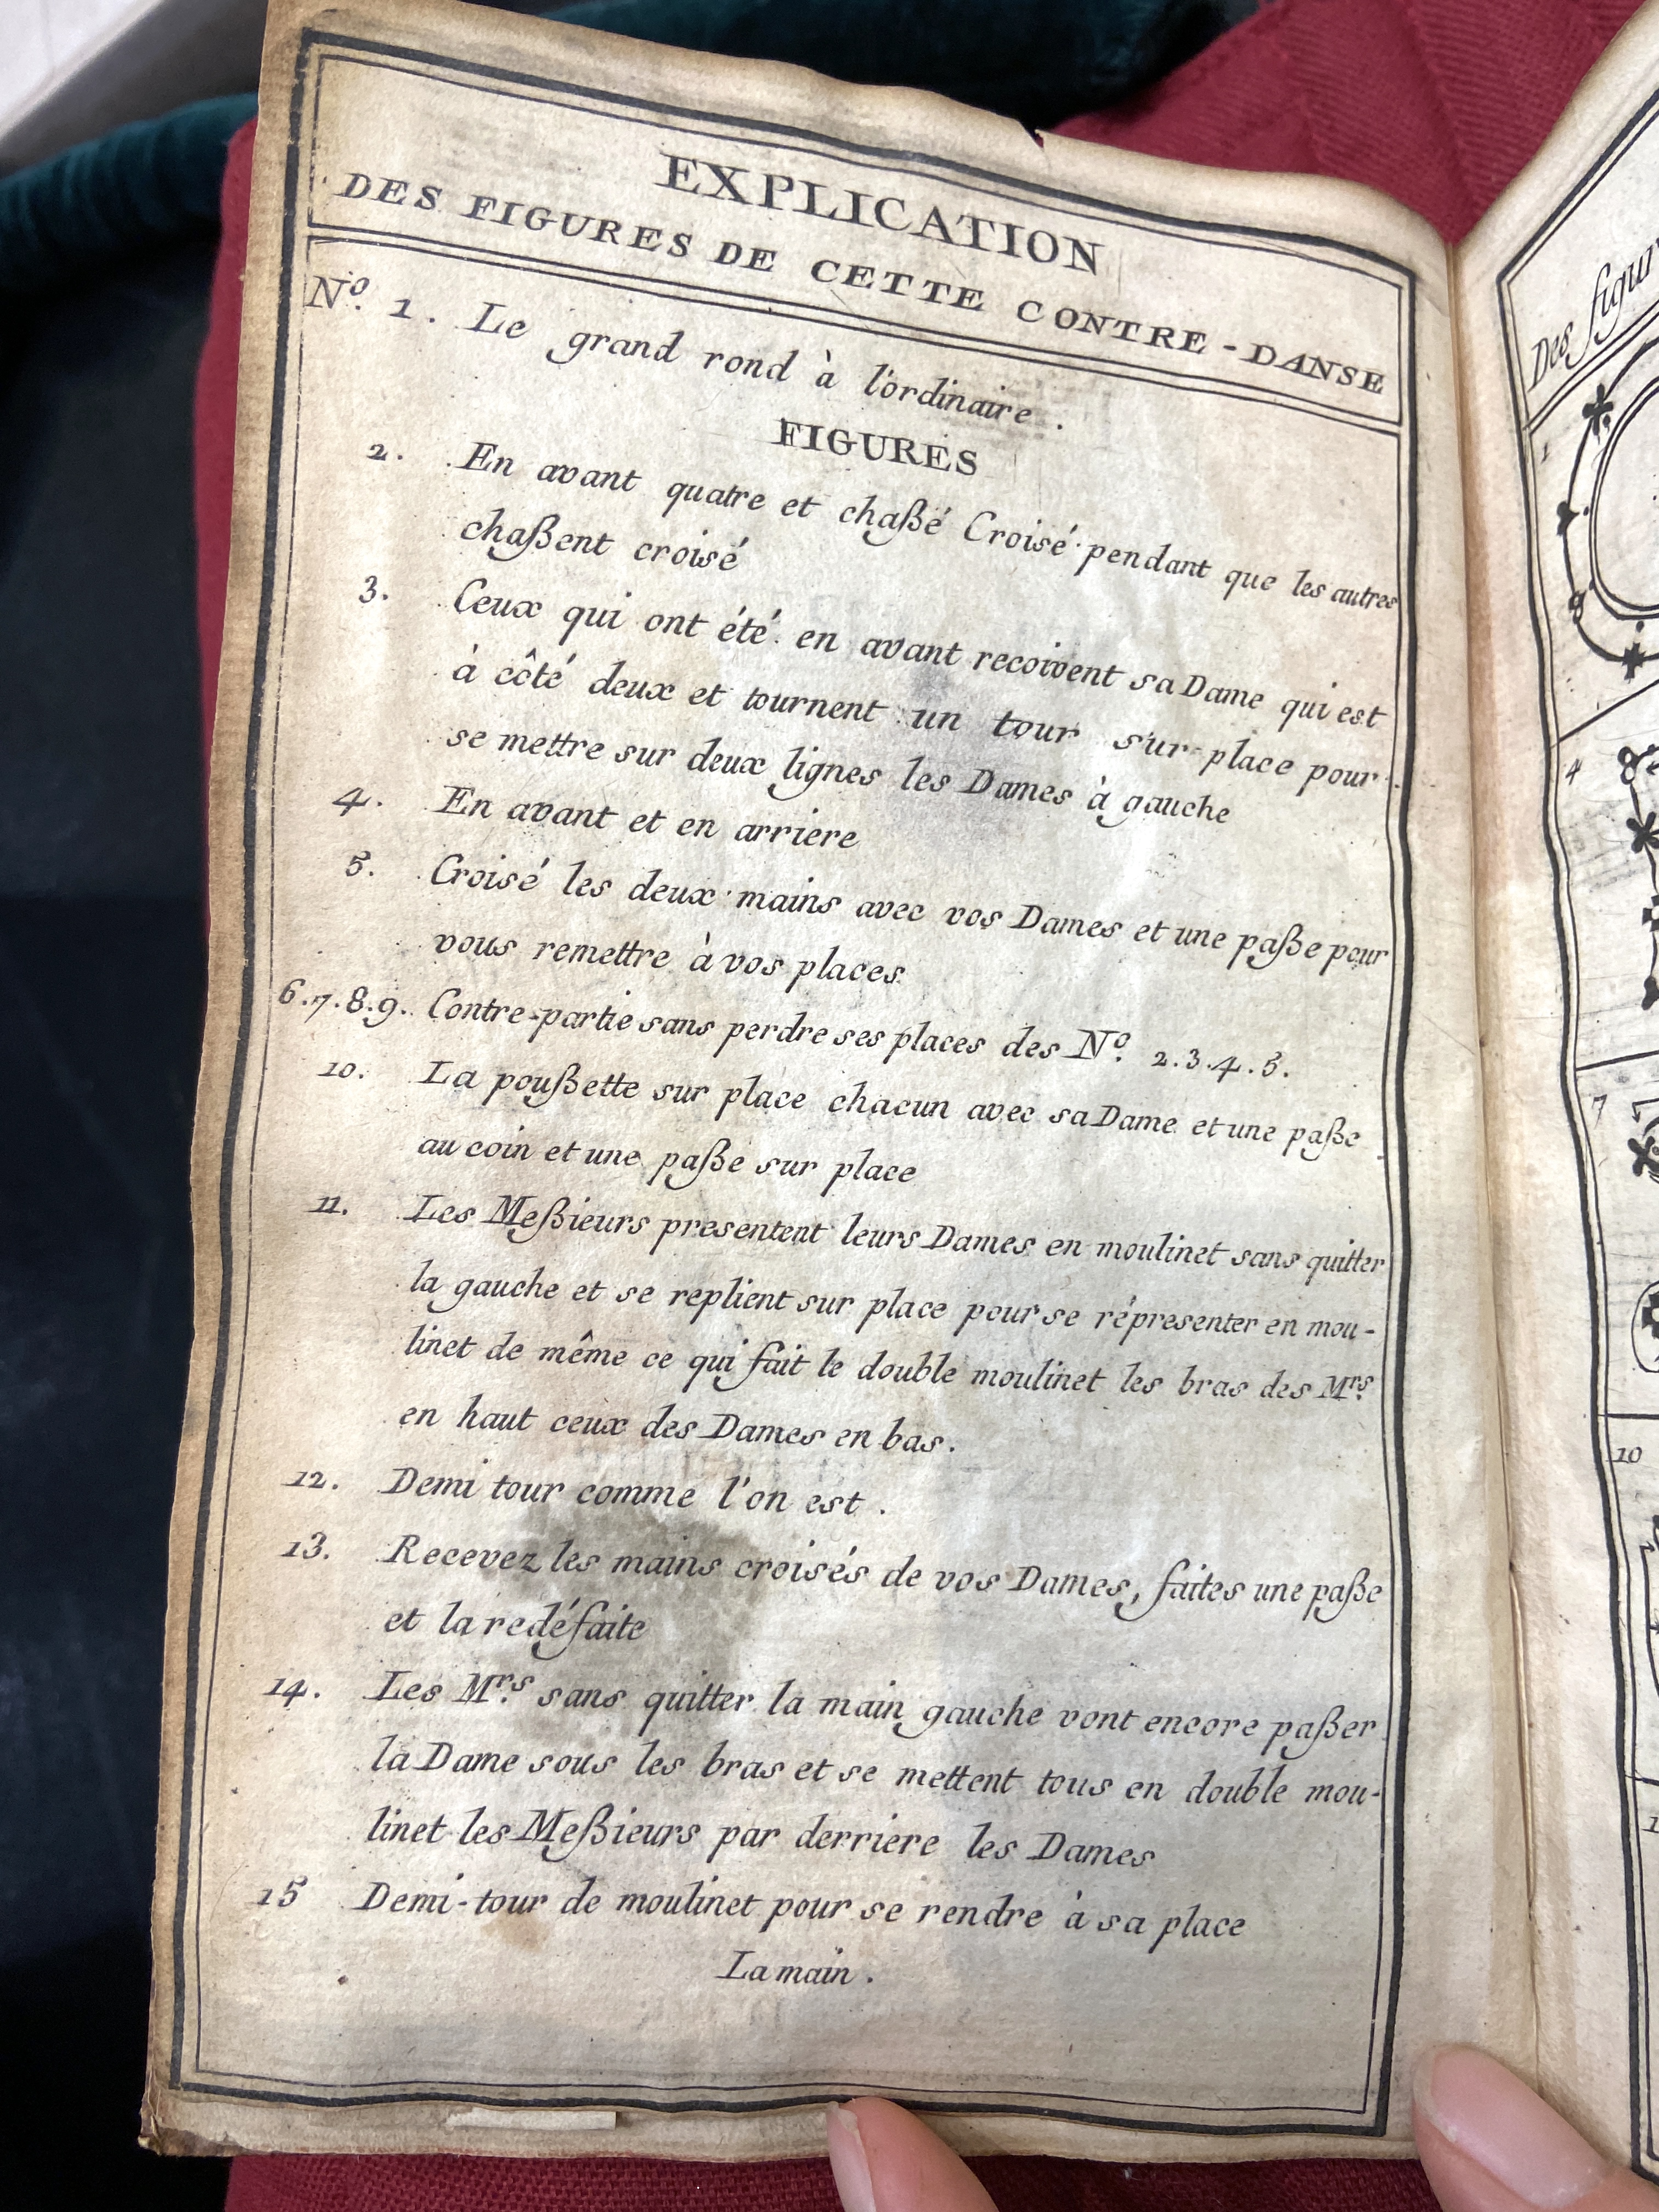 EXPLICATION
DES FIGURES DE CETTE CONTRE-DANSE
Nº. 1. Le grand rond à l'ordinaire.
FIGURES
2. En avant quatre et chaßé Croisé pendant que les autres
chaßent croisé
3. Ceux qui ont été en avant recoivent sa Dame qui est
à côté deux et tournent un tour sur place pour
se mettre sur deux lignes les Dames à gauche
4. En avant et en arriere
5. Croisé les deux mains avec vos Dames et une paße pour
vous remettre à vos places
6.7.8.9. Contre-partie sans perdre ses places des Nº. 2.3.4.5.
10. La poußette sur place chacun avec sa Dame et une paße
au coin et une paße sur place
11. Les Meßieurs presentent leurs Dames en moulinet sans quitter
la gauche et se replient sur place pour se répresenter en mou-
linet de même ce qui fait le double moulinet les bras des Mrs.
en haut ceux des Dames en bas.
12. Demi tour comme l'on est.
13. Recevez les mains croisés de vos Dames, faites une paße
et la redéfaite
14. Les Mrs. sans quitter la main gauche vont encore paßer
la Dame sous les bras et se mettent tous en double mou-
linet les Meßieurs par derriere les Dames
15 Demi-tour de moulinet pour se rendre à sa place
La main.
Des figur
1
4
7
10
1